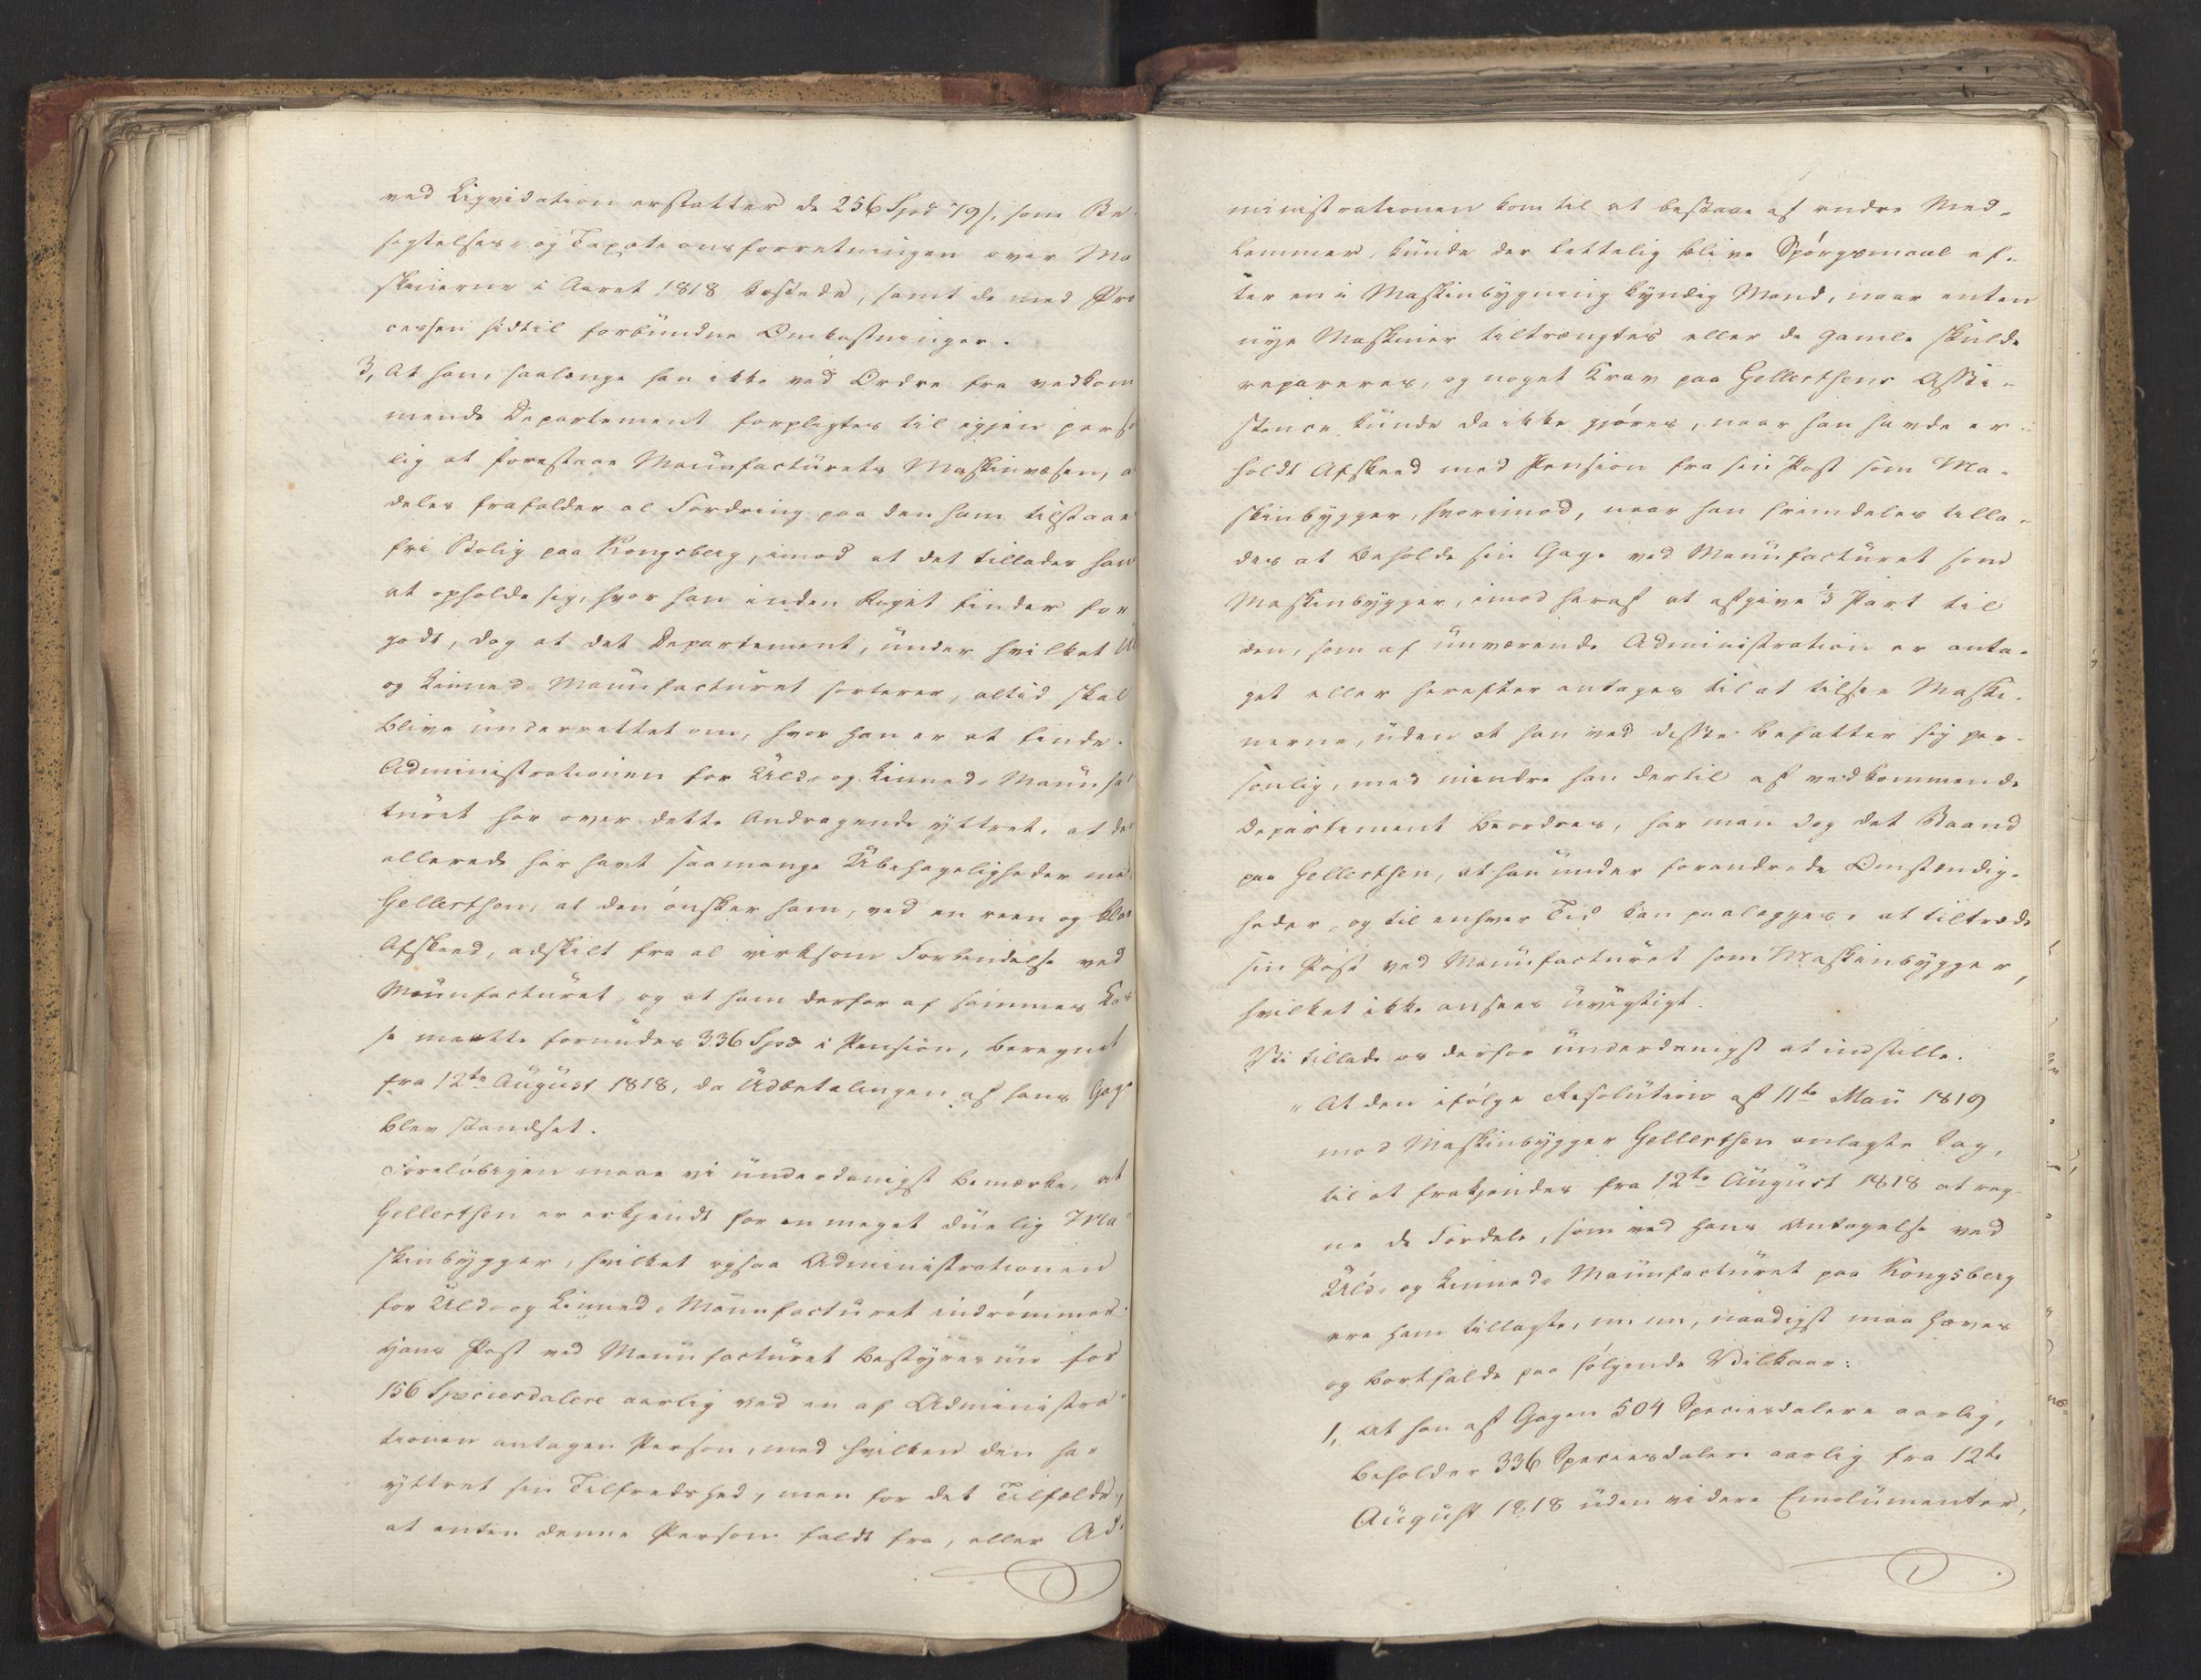 ved Liqvidation erstatter de 256 Spd 79 s, som Be
sigtelses- og Taxationsforretningen over Ma
skinerne i Aaret 1818 kostede, samt de med Pro
cessen hidtil forbundne Omkostninger.
3, At han, saalænge han ikke ved Ordre fra vedkom
mende Departement forpligtes til igjen perso
lig at forestaae Manufacturets Maskinvæsen, a
deles frafalder al Fordring paa den ham tilstaae
fri Bolig paa Kongsberg, imod at det tillades ham
at opholde sig, hvor han inden Riget finder for
godt, dog at det Departement, under hvilket Ul
og Linned-Manufacturet sorterer, altid skal
blive underrettet om, hvor han er at finde.
Administrationen for Uld- og Linned-Manufac
turet har over dette Andragende yttret, at den
allerede har havt saamange Ubehageligheder med
Gellertsen, at den ønsker ham, ved en reen og klar
Afskeed, adskilt fra al virksom Forbindelse ved
Manufacturet, og at ham derfor af sammes Cas
se maatte forundes 336 Spd i Pension, beregnet
fra 12te August 1818, da Udbetalingen af hans Gage
blev standset.
Foreløbigen maae vi underdanigst bemærke, at
Gellertsen er erkjendt for en meget duelig Ma
skinbygger, hvilket ogsaa Administrationen
for Uld- og Linned-Manufacturet indrømmer.
Hans Post ved Manufacturet bestyres nu for
156 Speciesdalere aarlig ved en af Administra
tionen antagen Person, med hvilken den har
yttret sin Tilfredshed, men for det Tilfælde,
at enten denne Person faldt fra, eller Ad-
ministrationen kom til at bestaae af andre Med-
lemmer, kunde der lettelig blive Spørgsmaal ef-
ter en i Maskinbygning kyndig Mand, naar enten
nye Maskiner tiltrængtes eller de gamle skulde
repareres, og noget Krav paa Gellertsens Assi-
stence kunde da ikke gjøres, naar han havde er-
holdt Afskeed med Pension fra sin Post som Ma-
skinbygger, hvorimod, naar han fremdeles tilla-
des at beholde sin Gage ved Manufacturet som
Maskinbygger, imod heraf at afgive ⅓ Part til
den, som af nuværende Administration er anta-
get eller herefter antages til at tilsee Maski-
nerne, uden at han ved disse befatter sig per-
sonlig, med mindre han dertil af vedkommende
Departement beordres, har man dog det Baand
paa Gellertsen, at han under forandrede Omstændig-
heder, og til enhver Tid kan paalægges, at tiltræde
sin Post ved Manufacturet som Maskinbygger,
hvilket ikke ansees uvigtigt.
Vi tillade os derfor underdanigst at indstille:
"At den ifølge Resolution af 11te Mai 1819
mod Maskinbygger Gellertsen anlagte Sag,
til at frakjendes fra 12te August 1818 at reg-
ne de Fordele, som ved hans Antagelse ved
Uld- og Linned-Manufacturet paa Kongsberg
ere ham tillagte, m. m., naadigst maa hæves
og bortfalde paa følgende Vilkaar:
1, At han af Gagen 504 Speciesdalere aarlig,
beholder 336 Speciesdalere aarlig fra 12te
August 1818 uden videre Emolumenter,